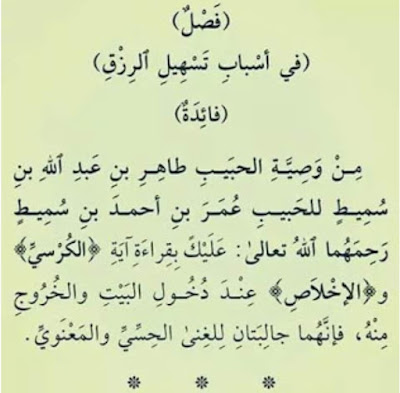 (فَصْلٌ)
(في أسْبابِ تَسْهِيلِ ٱلرِزْقِ)
(فائِدَةٌ)
مِـنْ وَصِيَّـةِ الحبَيـبِ طاهِـرِ بنِ عَبدِ اللهِ بنِ
سُمِيـطٍ للحَبيـبِ عُمَرَ بنِ أحمـدَ بنِ سُمِيـطٍ
رَحِمَهُما اللهُ تعالىٰ: عَلَيْكَ بِقِراءَةِ آيَةِ ﴿الكُرْسيِّ﴾
و﴿الإخْلاَصِ﴾ عِنْـدَ دُخُـولِ البَيْتِ والخُرُوجِ
مِنْهُ، فَإنَّهُما جالِبَتانِ لِلغِنىٰ الحِسِّيِّ والمَعْنَوِيِّ.